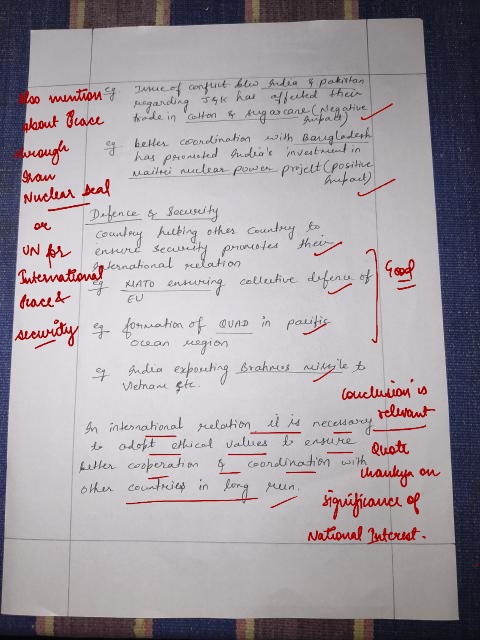 eg Issue of conflict b/w India & pakistan
regarding J&K has affected their
trade in cotton & sugarcane (Negative
Impact)
eg better coordination with Bangladesh
has promoted India's investment in
Maitri nuclear power projelt (positive
Impact)
Also mention
about Peace
through
Iran
Nuclear Deal
or
UN for
International
Peace &
security
Defence & Security
Country helking other country to
ensure security promotes their
International relation
eg NATO ensuring collective defence of
EU
eg formation of QUAD in pacific
Ocean region
eg India exporting Brahmos missile to
Vietnam etc.
Good
In international relation it is necessary
to adopt ethical values to ensure
better cooperation & coordination with
other countries in long run.
Conclusion is
relevant
Quote
Chankya on
significance of
National Interest.